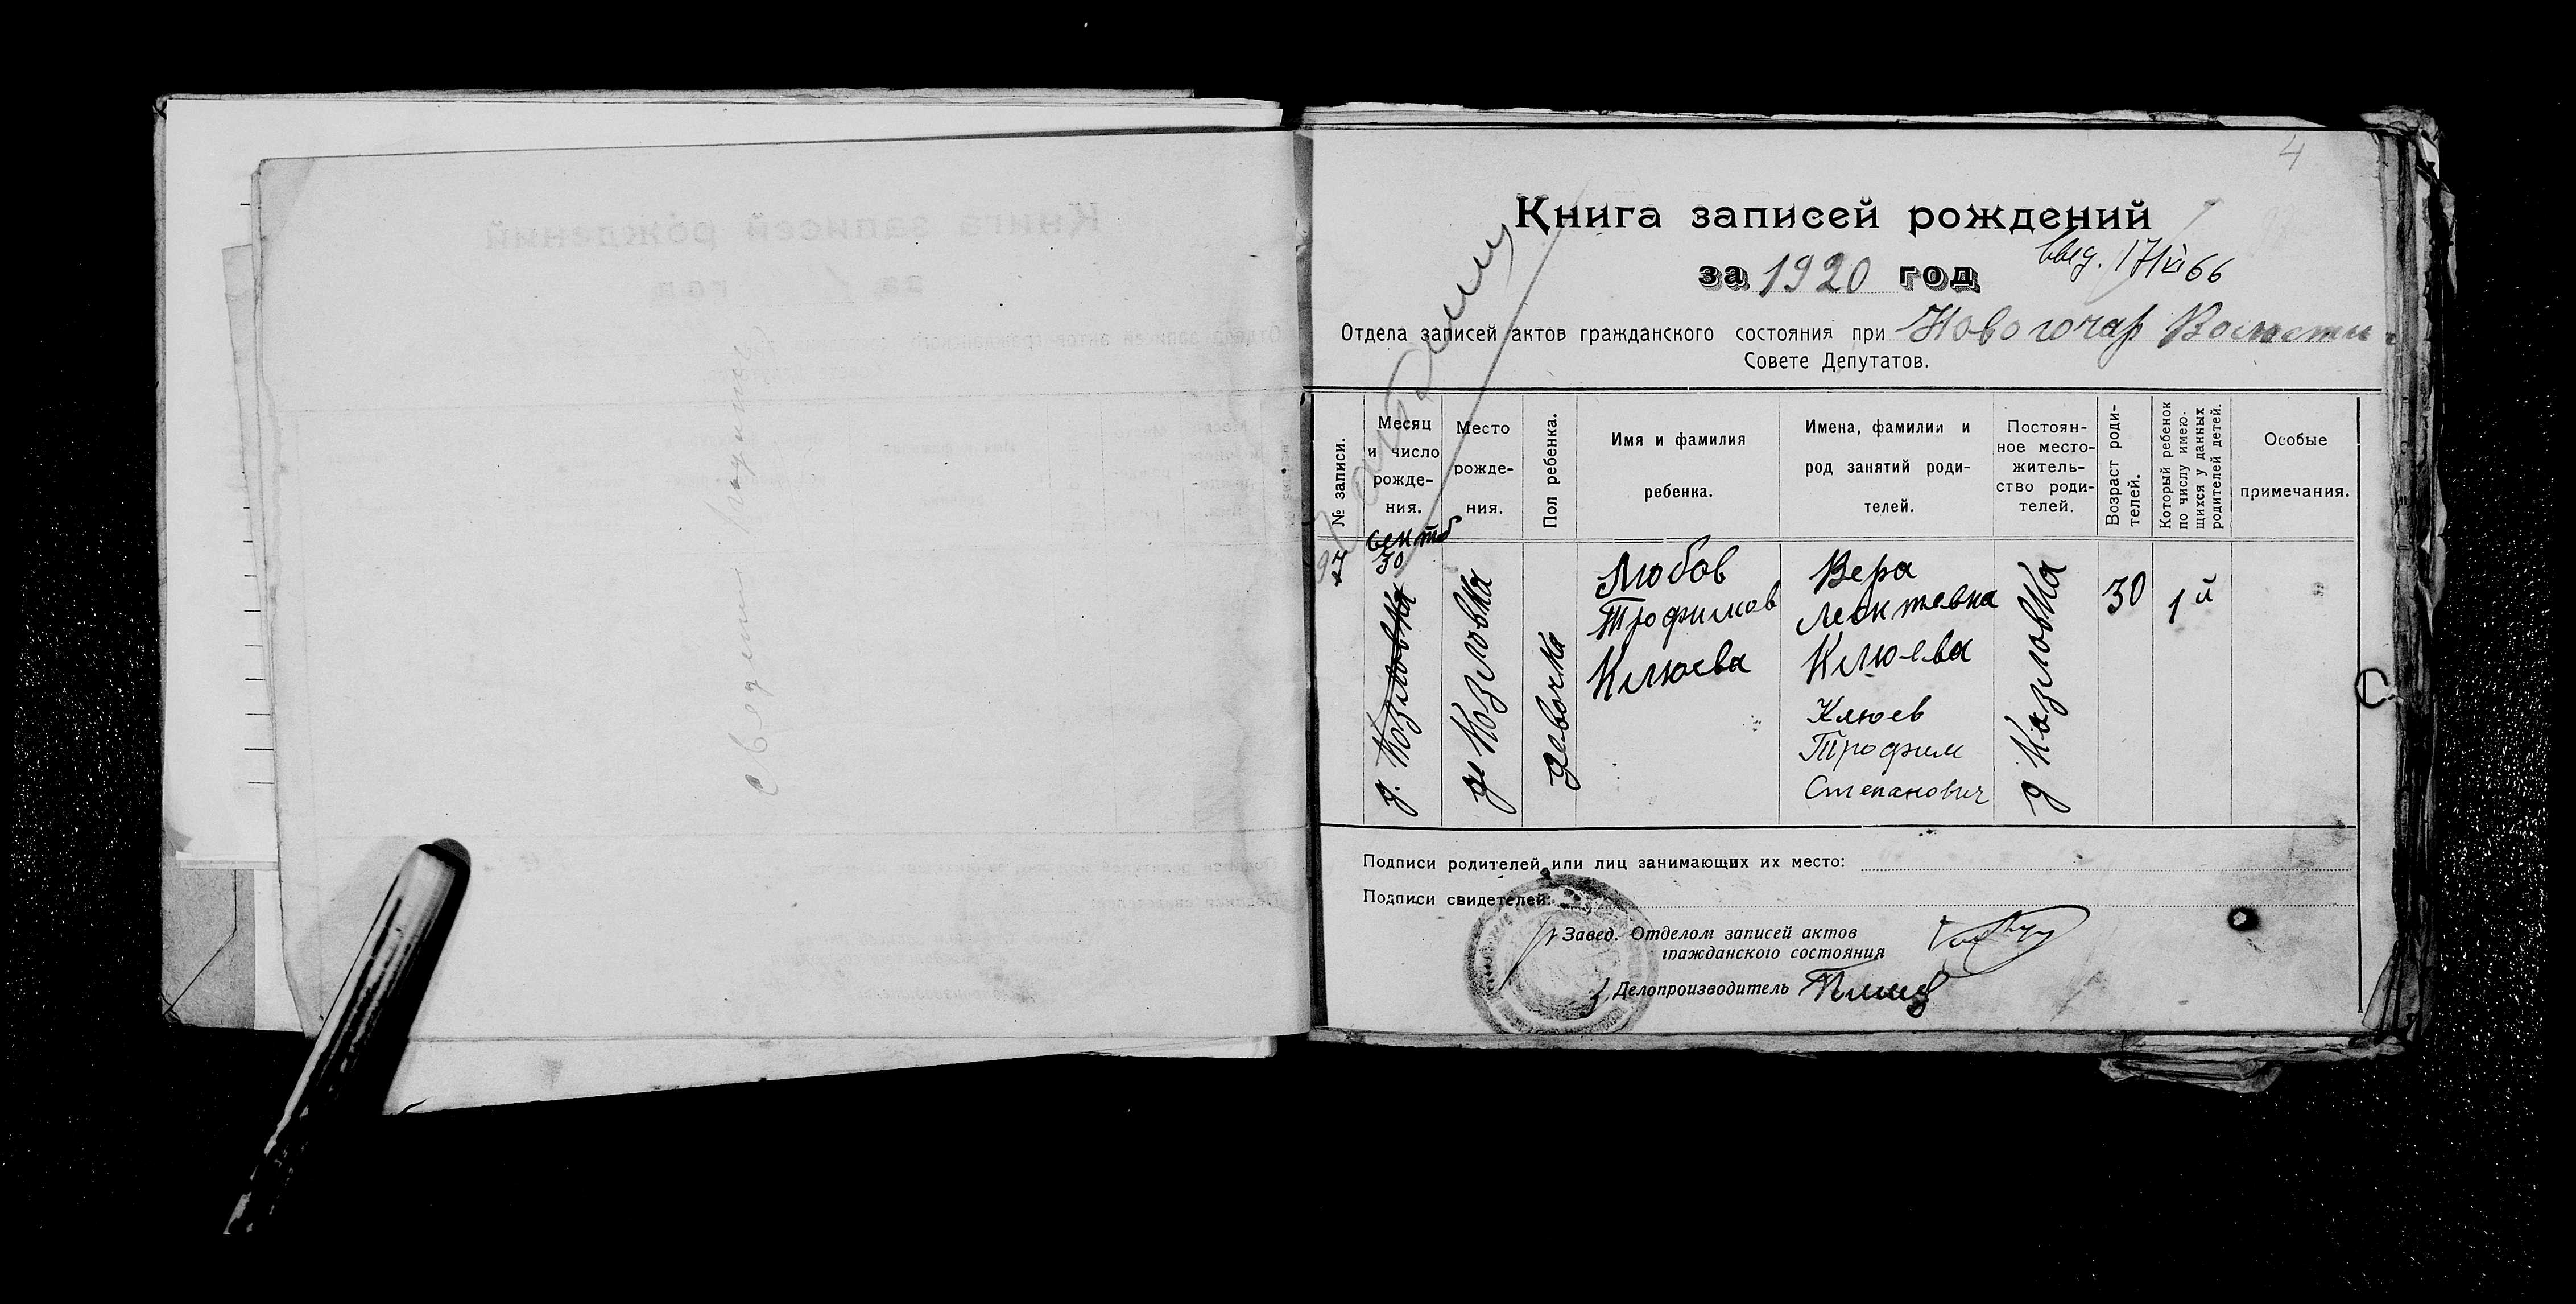 4
Книга записей рождений
за 1920 год
17/VI 66
Отдела записей актов гражданского состояния при
Совете Депутатов.
№ записи.
Месяц
и число
рожде-
ния.
Место
рожде-
ния.
Пол ребенка.
Имя и фамилия
ребенка.
Имена, фамилии и
род занятий роди-
телей.
Постоян-
ное место-
житель-
ство роди-
телей.
Возраст роди-
телей.
Который ребенок
по числу имею-
щихся у данных
родителей детей.
Особые
примечания.
сентб
30
д. Козловка
д Козловка
девочка
Любов
Трофимов
Клюева
Вера
Леонтевна
Клюева
Клюев
Трофим
Степанович
д Козловка
30
1й
Подписи родителей или лиц занимающих их место:
Подписи свидетелей:
Завед. Отделом записей актов
гражданского состояния
Делопроизводитель